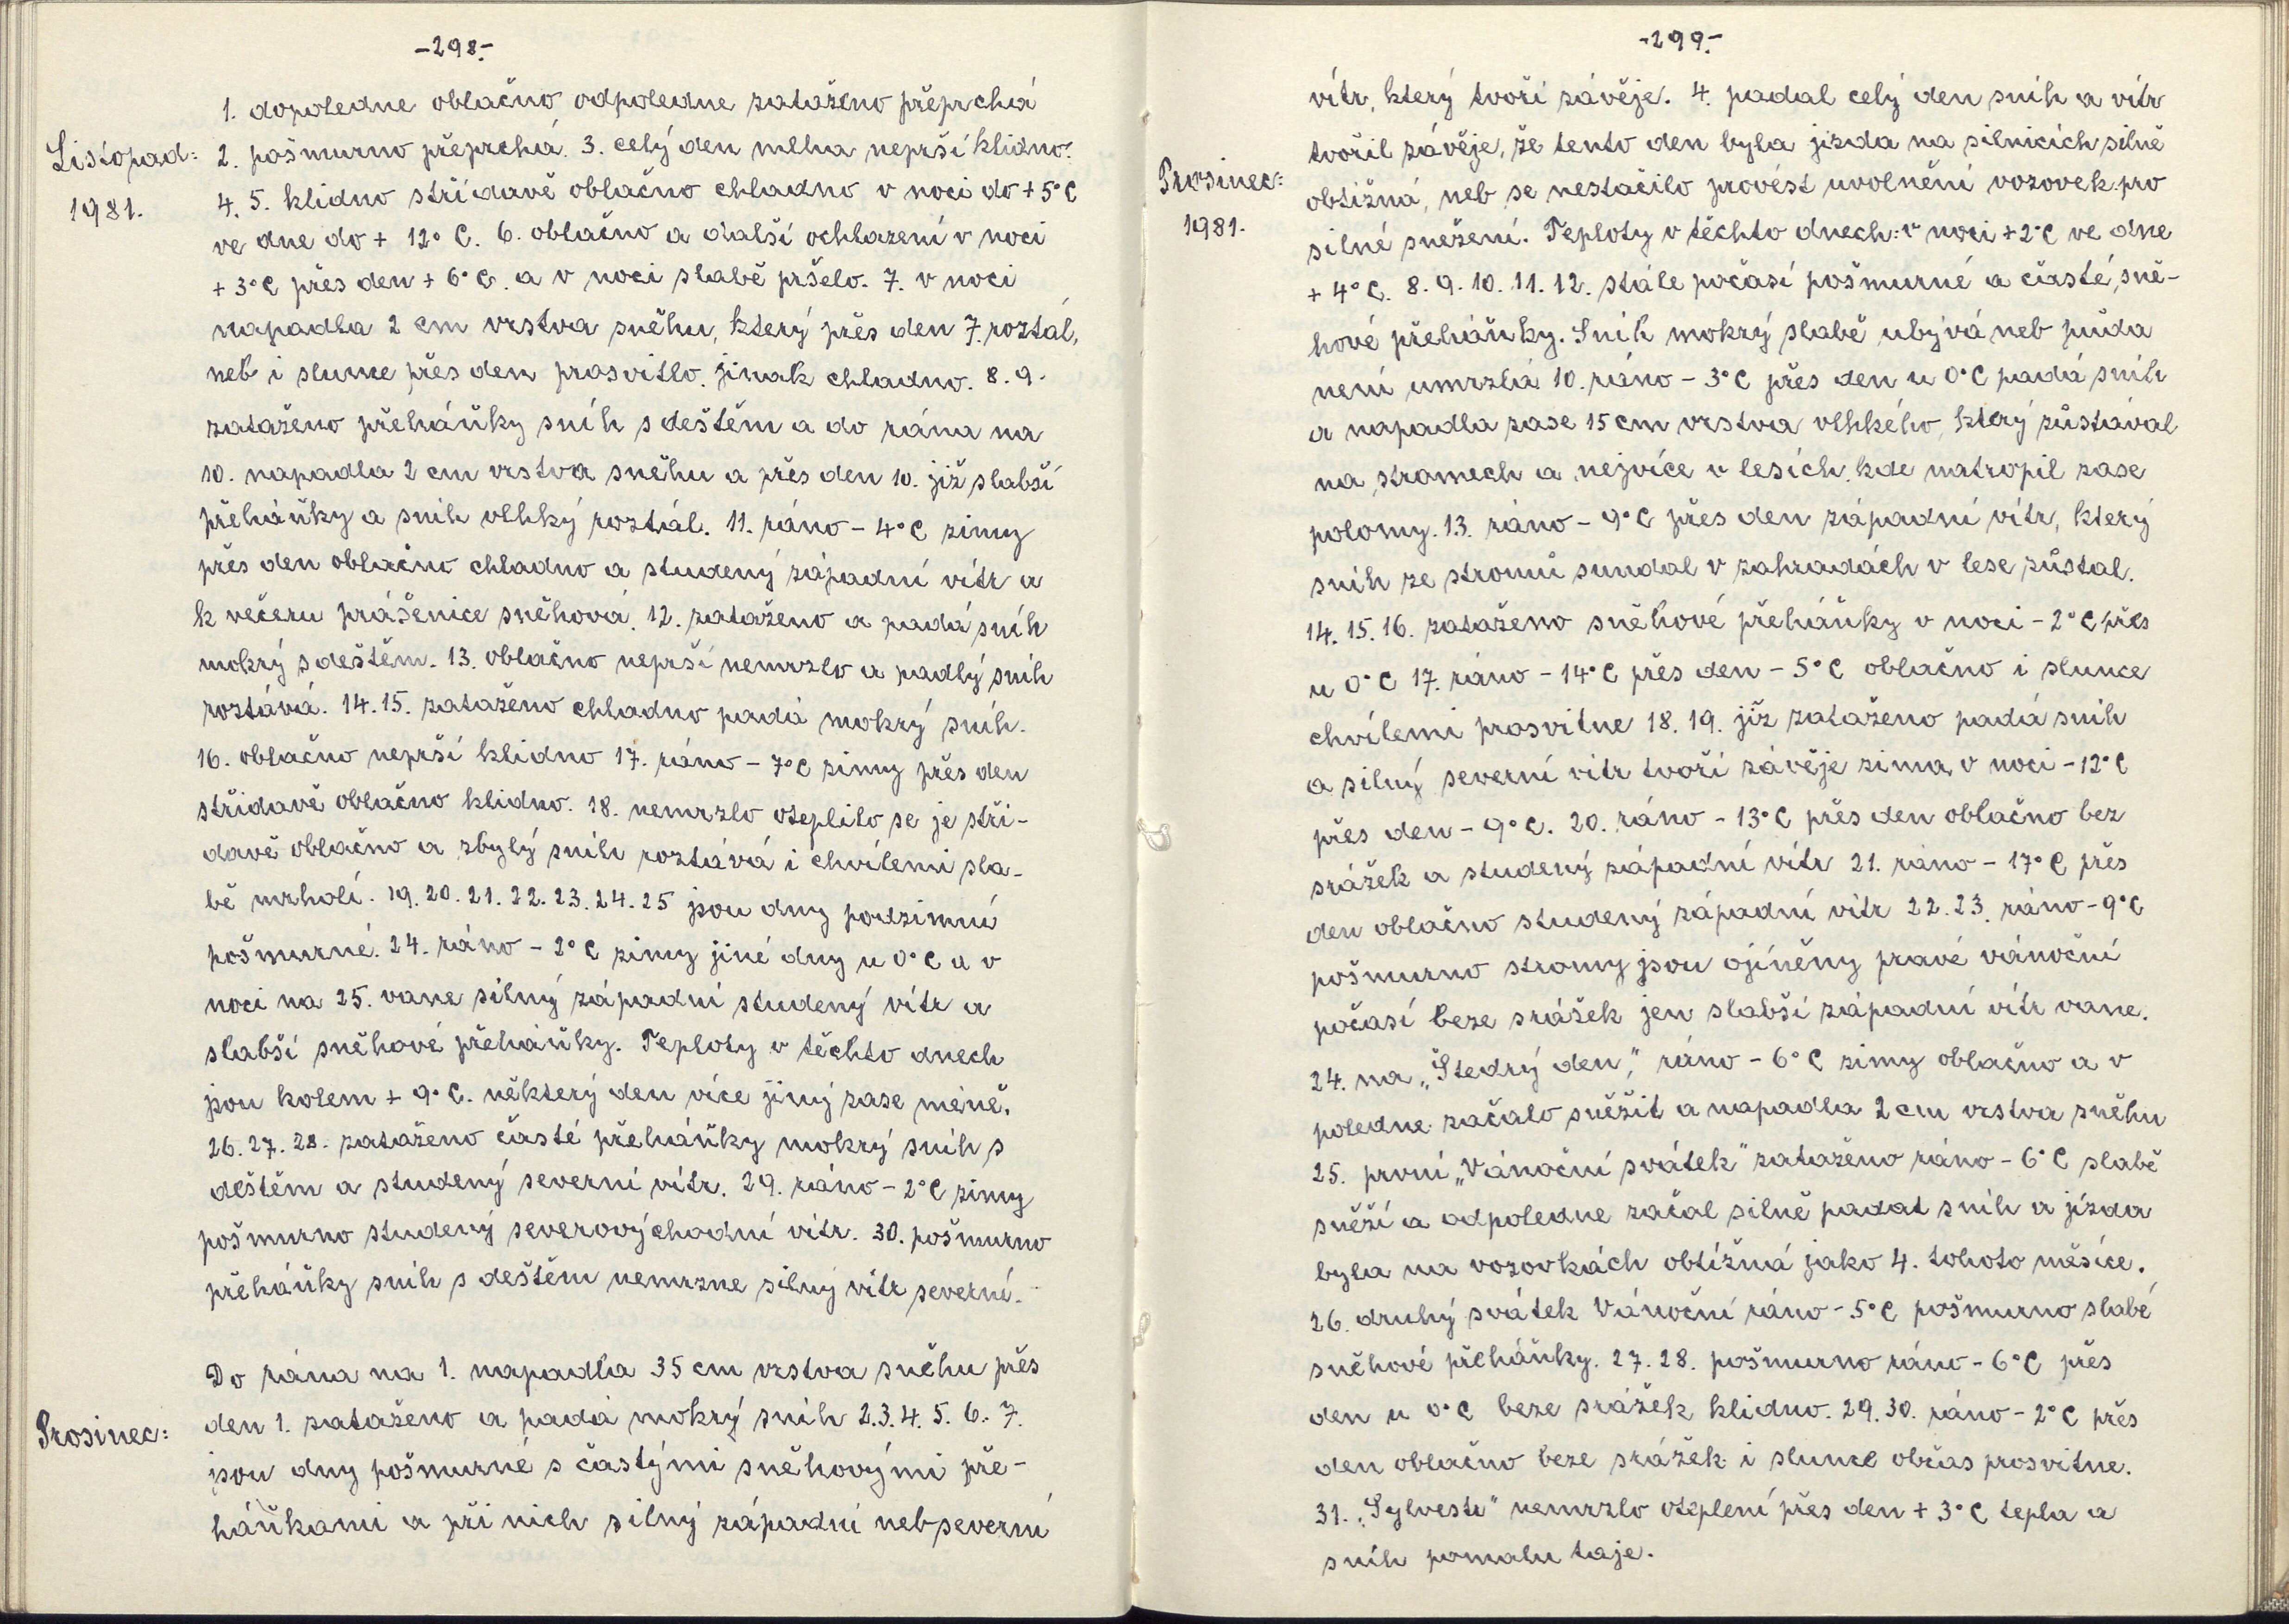 -298-
1. dopoledne oblačno odpoledne zataženo přeprchá
Listopad: 2. pošmurno přeprchá. 3. celý den mlha neprší klidno.
1981. 4. 5. klidno střídavě oblačno chladno v noci do +5°C
ve dne do + 12° C. 6. oblačno a další ochlazení v noci
+ 3°C přes den + 6°C. a v noci slabě pršelo. 7. v noci
napadla 2 cm vrstva sněhu, který přes den 7. roztál,
neb i slunce přes den prosvitlo. jinak chladno. 8. 9.
zataženo přeháňky sníh s deštěm a do rána na
10. napadla 2 cm vrstva sněhu a přes den 10. již slabší
přeháňky a sníh vlhký roztál. 11. ráno - 4°C zimy
přes den oblačno chladno a studený západní vítr a
k večeru prášenice sněhová. 12. zataženo a padá sníh
mokrý s deštěm. 13. oblačno neprší nemrzlo a padlý sníh
roztává. 14. 15. zataženo chladno padá mokrý sníh.
16. oblačno neprší klidno 17. ráno - 7°C zimy přes den
střídavě oblačno klidno. 18. nemrzlo oteplilo se je stří-
davě oblačno a zbylý sníh roztává i chvílemi sla-
bě mrholí. 19. 20. 21. 22. 23. 24. 25 jsou dny podzimní
pošmurné. 24. ráno - 2°C zimy jiné dny u 0°C a v
noci na 25. vane silný západní studený vítr a
slabší sněhové přeháňky. Teploty v těchto dnech
jsou kolem + 9°C. některý den více jiný zase méně.
26. 27. 28. zataženo časté přeháňky mokrý sníh s
deštěm a studený severní vítr. 29. ráno - 2°C zimy
pošmurno studený severovýchodní vítr. 30. pošmurno
přeháňky sníh s deštěm nemrzne silný vítr severní.
Do rána na 1. napadla 35 cm vrstva sněhu přes
Prosinec: den 1. zataženo a padá mokrý sníh 2. 3. 4. 5. 6. 7.
jsou dny pošmurné s častými sněhovými pře-
háňkami a při nich silný západní neb severní
-299.-
vítr, který tvoří závěje. 4. padal celý den sníh a vítr
tvořil závěje, že tento den byla jízda na silnicích silně
Prosinec: obtížná, neb se nestačilo provést uvolnění vozovek pro
1981. silné sněžení. Teploty v těchto dnech: v noci +2°C ve dne
+ 4°C. 8. 9. 10. 11. 12. stále počasí pošmurné a časté, sně-
hové přeháňky. Sníh mokrý slabě ubývá neb půda
není umrzlá 10. ráno - 3°C přes den u 0°C padá sníh
a napadla zase 15 cm vrstva vlhkého, který zůstával
na stromech a nejvíce v lesích kde natropil zase
polomy. 13. ráno - 9°C přes den západní vítr, který
sníh ze stromů sundal v zahradách v lese zůstal.
14. 15. 16. zataženo sněhové přeháňky v noci - 2°C přes
u 0°C 17. ráno - 14°C přes den - 5°C oblačno i slunce
chvílemi prosvitne 18. 19. již zataženo padá sníh
a silný severní vítr tvoří závěje zima v noci - 12°C
přes den - 9°C. 20. ráno - 13°C přes den oblačno bez
srážek a studený západní vítr 21. ráno - 17°C přes
den oblačno studený západní vítr 22. 23. ráno - 9°C
pošmurno stromy jsou ojíněny pravé vánoční
počasí beze srážek jen slabší západní vítr vane.
24. na „Štedrý den", ráno - 6°C zimy oblačno a v
poledne začalo sněžit a napadla 2 cm vrstva sněhu
25. první „Vánoční svátek" zataženo ráno - 6°C slabě
sněží a odpoledne začal silně padat sníh a jízda
byla na vozovkách obtížná jako 4. tohoto měsíce.
26. druhý svátek Vánoční ráno - 5°C pošmurno slabé
sněhové přeháňky. 27. 28. pošmurno ráno - 6°C přes
den u 0°C beze srážek klidno. 29. 30. ráno - 2°C přes
den oblačno beze srážek i slunce občas prosvitne.
31. „Sylvestr" nemrzlo oteplení přes den + 3°C tepla a
sníh pomalu taje.